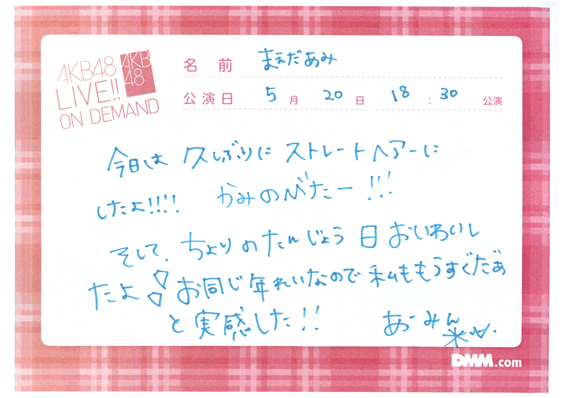 AKB48
LIVE!!
ON DEMAND
AKB
48
名前 まえだあみ
公演日 5月20日 18:30 公演
今日は 久しぶりに ストレートヘアーに
したよ!!!! かみのびたー!!!
そして、ちよりのたんじょう日おいわいし
たよ! お同じ年れいなので私ももうすぐだぁ
と実感した!! あーみん
DMM.com